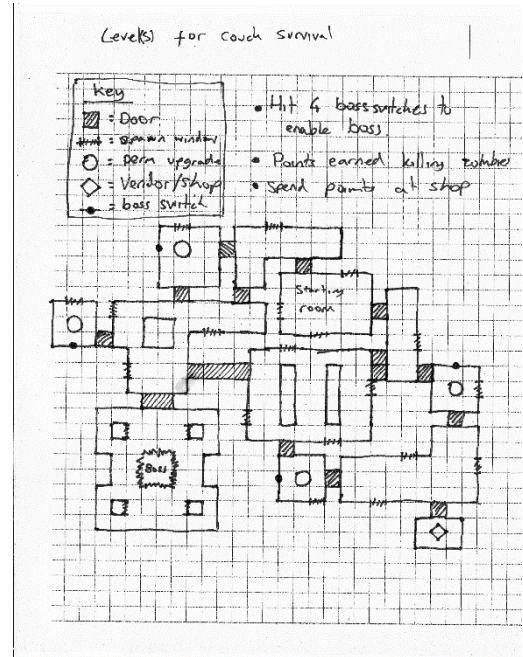 Level(s) for couch survival
Key
= Door
= spawn window
= perm upgrade
= Vendor/shop
= boss switch
• Hit 4 boss switches to
enable boss
• Points earned killing zombies
• Spend points at shop
Starting
room
Boss